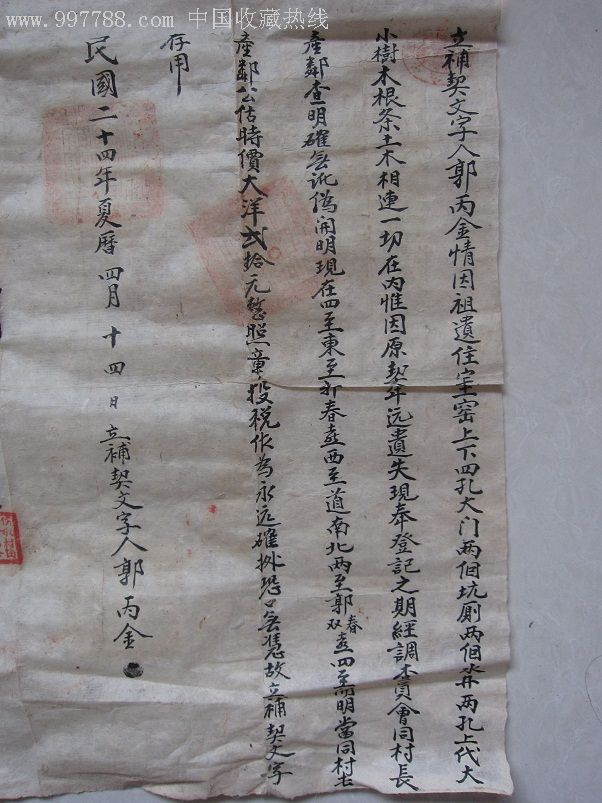 www.997788.com 中国收藏热线
立補契文字人郭丙金情因祖遺住宅窑上下四孔大门两個坑厠两個水井两孔上代大
小樹木根条土木相連一切在内惟因原契年远遺失現奉登記之期經調查員會同村長
產鄰查明確無訛僞開明現在四至東至 春臺西至道南北两至郭春双臺四至 明當同村長
產鄰公估時價大洋弍拾元整照章投税作為永远確拠恐口無憑故立補契文字
存用
民國二十四年夏曆四月十四日立補契文字人郭丙金